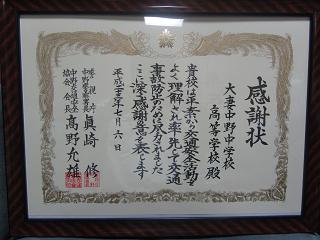 感謝状
大妻中野中学校
高等学校 殿
貴校は平素から交通安全活動を
よく理解され率先して交通
事故防止のために尽力されました
ここに深く感謝の意を表します
平成二十三年七月六日
警視庁
中野警察署長 眞崎 修
中野交通安全
協会会長 高野允雄